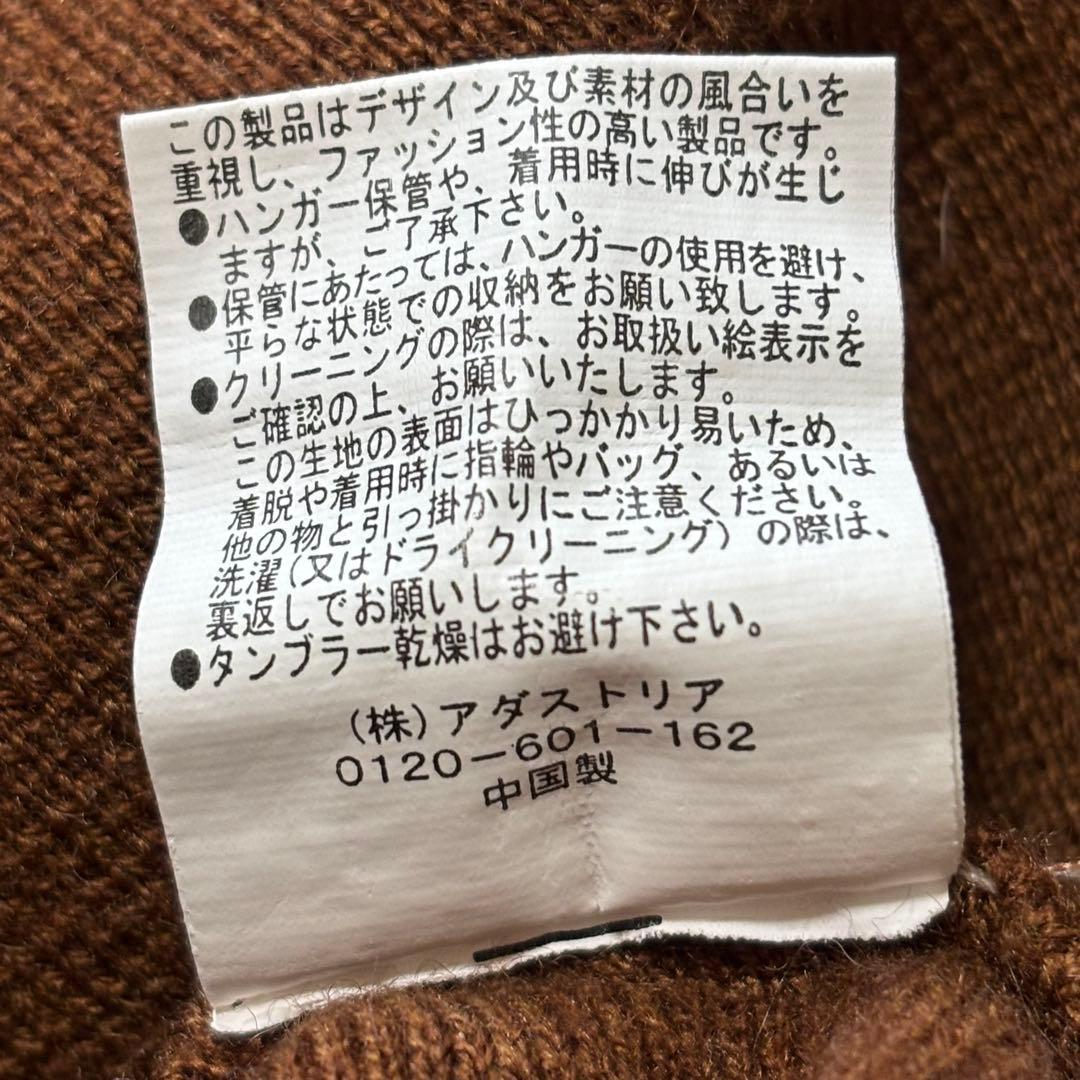 この製品はデザイン及び素材の風合いを
重視し、ファッション性の高い製品です。
●ハンガー保管や、着用時に伸びが生じ
ますが、ご了承下さい。
●保管にあたっては、ハンガーの使用を避け、
平らな状態での収納をお願い致します。
●クリーニングの際は、お取扱い絵表示を
ご確認の上、お願いいたします。
この生地の表面はひっかかり易いため、
着脱や着用時に指輪やバッグ、あるいは
他の物と引っ掛かりにご注意ください。
洗濯(又はドライクリーニング)の際は、
裏返しでお願いします。
●タンブラー乾燥はお避け下さい。
(株)アダストリア
0120-601-162
中国製